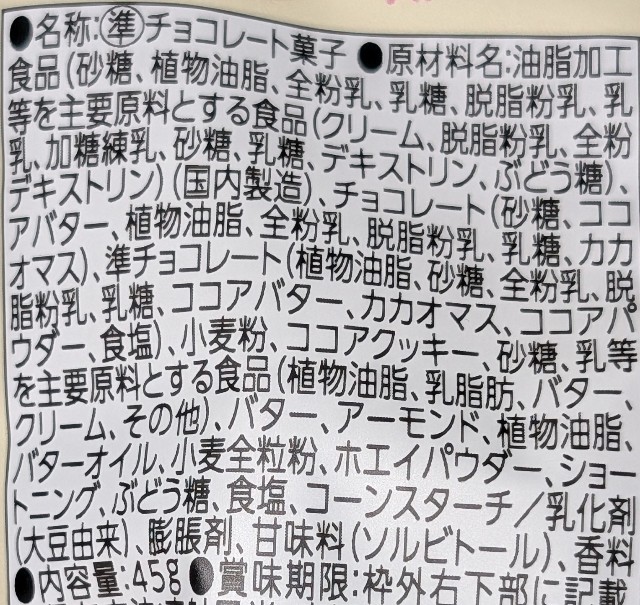 ●名称:準チョコレート菓子 ●原材料名:油脂加工
食品(砂糖、植物油脂、全粉乳、乳糖、脱脂粉乳、乳
等を主要原料とする食品(クリーム、脱脂粉乳、全粉
乳、加糖練乳、砂糖、乳糖、デキストリン、ぶどう糖)、
デキストリン)(国内製造)、チョコレート(砂糖、ココ
アバター、植物油脂、全粉乳、脱脂粉乳、乳糖、カカ
オマス)、準チョコレート(植物油脂、砂糖、全粉乳、脱
脂粉乳、乳糖、ココアバター、カカオマス、ココアパ
ウダー、食塩)、小麦粉、ココアクッキー、砂糖、乳等
を主要原料とする食品(植物油脂、乳脂肪、バター、
クリーム、その他)、バター、アーモンド、植物油脂、
バターオイル、小麦全粒粉、ホエイパウダー、ショー
トニング、ぶどう糖、食塩、コーンスターチ/乳化剤
(大豆由来)、膨脹剤、甘味料(ソルビトール)、香料
●内容量:45g ●賞味期限:枠外右下部に記載